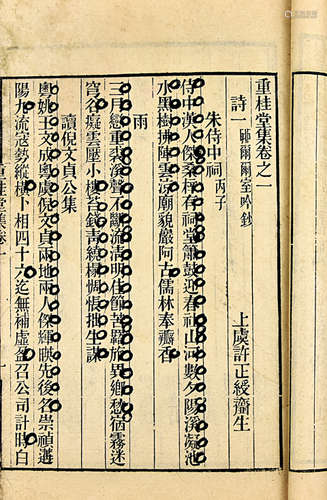 重桂堂集卷之一
詩一
上虞許正綬齋生
朱侍中祠 丙子
侍中漢人傑桑梓有祠堂簫鼓迎春社山河數夕陽溪凝池
水黑樹拂陣雲涼廟貌嚴阿古儒林奉瓣香
雨
三月戀重裘溪聲不斷流清明佳節苦羈旅異鄉愁宿霧迷
穹谷癡雲壓小樓苔錢青繞榻惆悵拙生謀
讀倪文貞公集
粵姚王文成粵虞倪文貞兩地兩人傑輝映先後名崇禎遘
陽九流寇勢縱橫卜相四十六迄無補虛盈召公司計時白
重桂堂集卷一